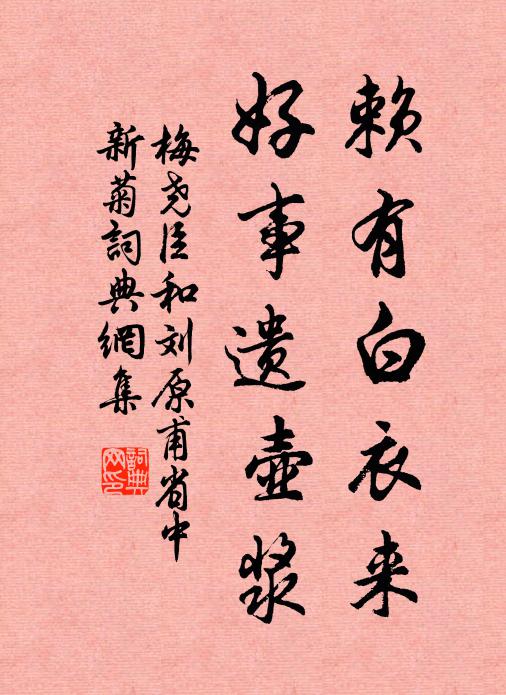 赖有白衣来
好事遗壶浆
梅尧臣和刘原甫省中
新菊詞典網集
詞典网印